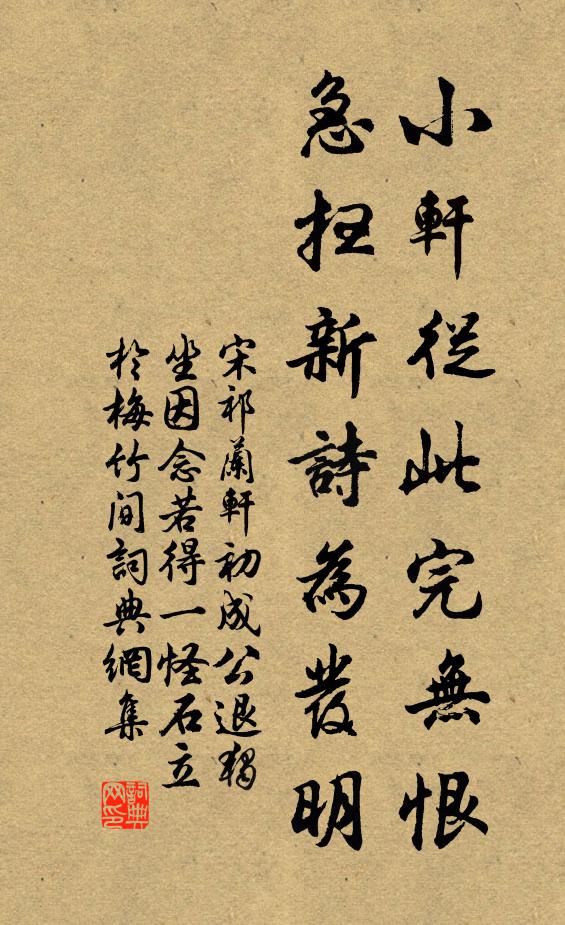 小軒從此完無恨
急抂新詩為發明
宋祁蘭軒初成公退獨
坐因念若得一怪石立
於梅竹間詞典網集
詞典
网印